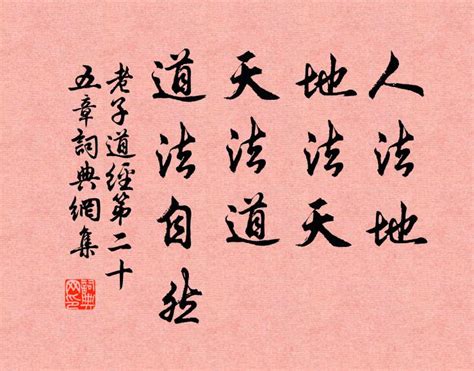 人法地
地法天
天法道
道法自然
老子道經第二十
五章詞典網集
詞典網印